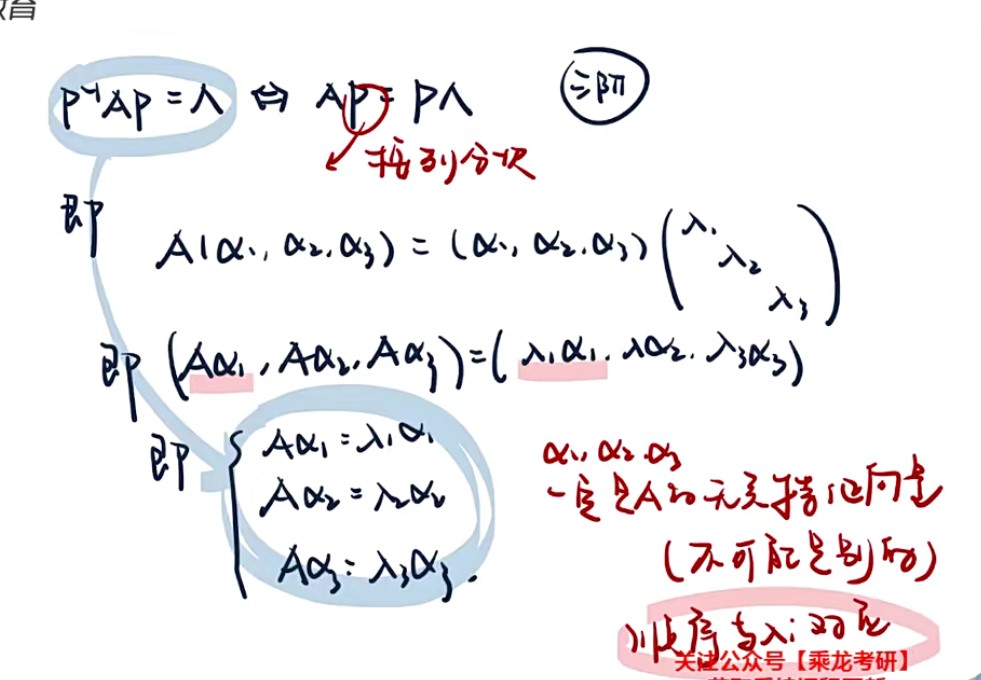 教育
P⁻¹AP = Λ ⇔ AP = PΛ 三阶
按列分块
即
A(α₁, α₂, α₃) = (α₁, α₂, α₃) (λ₁ λ₂ λ₃)
即 (Aα₁, Aα₂, Aα₃) = (λ₁α₁, λα₂, λ₃α₃)
即 { Aα₁ = λ₁α₁
Aα₂ = λ₂α₂
Aα₃ = λ₃α₃.
α₁, α₂, α₃
一定是A的无关特征向量
(不可能是别的)
顺序与λᵢ对应
关注公众号【乘龙考研】